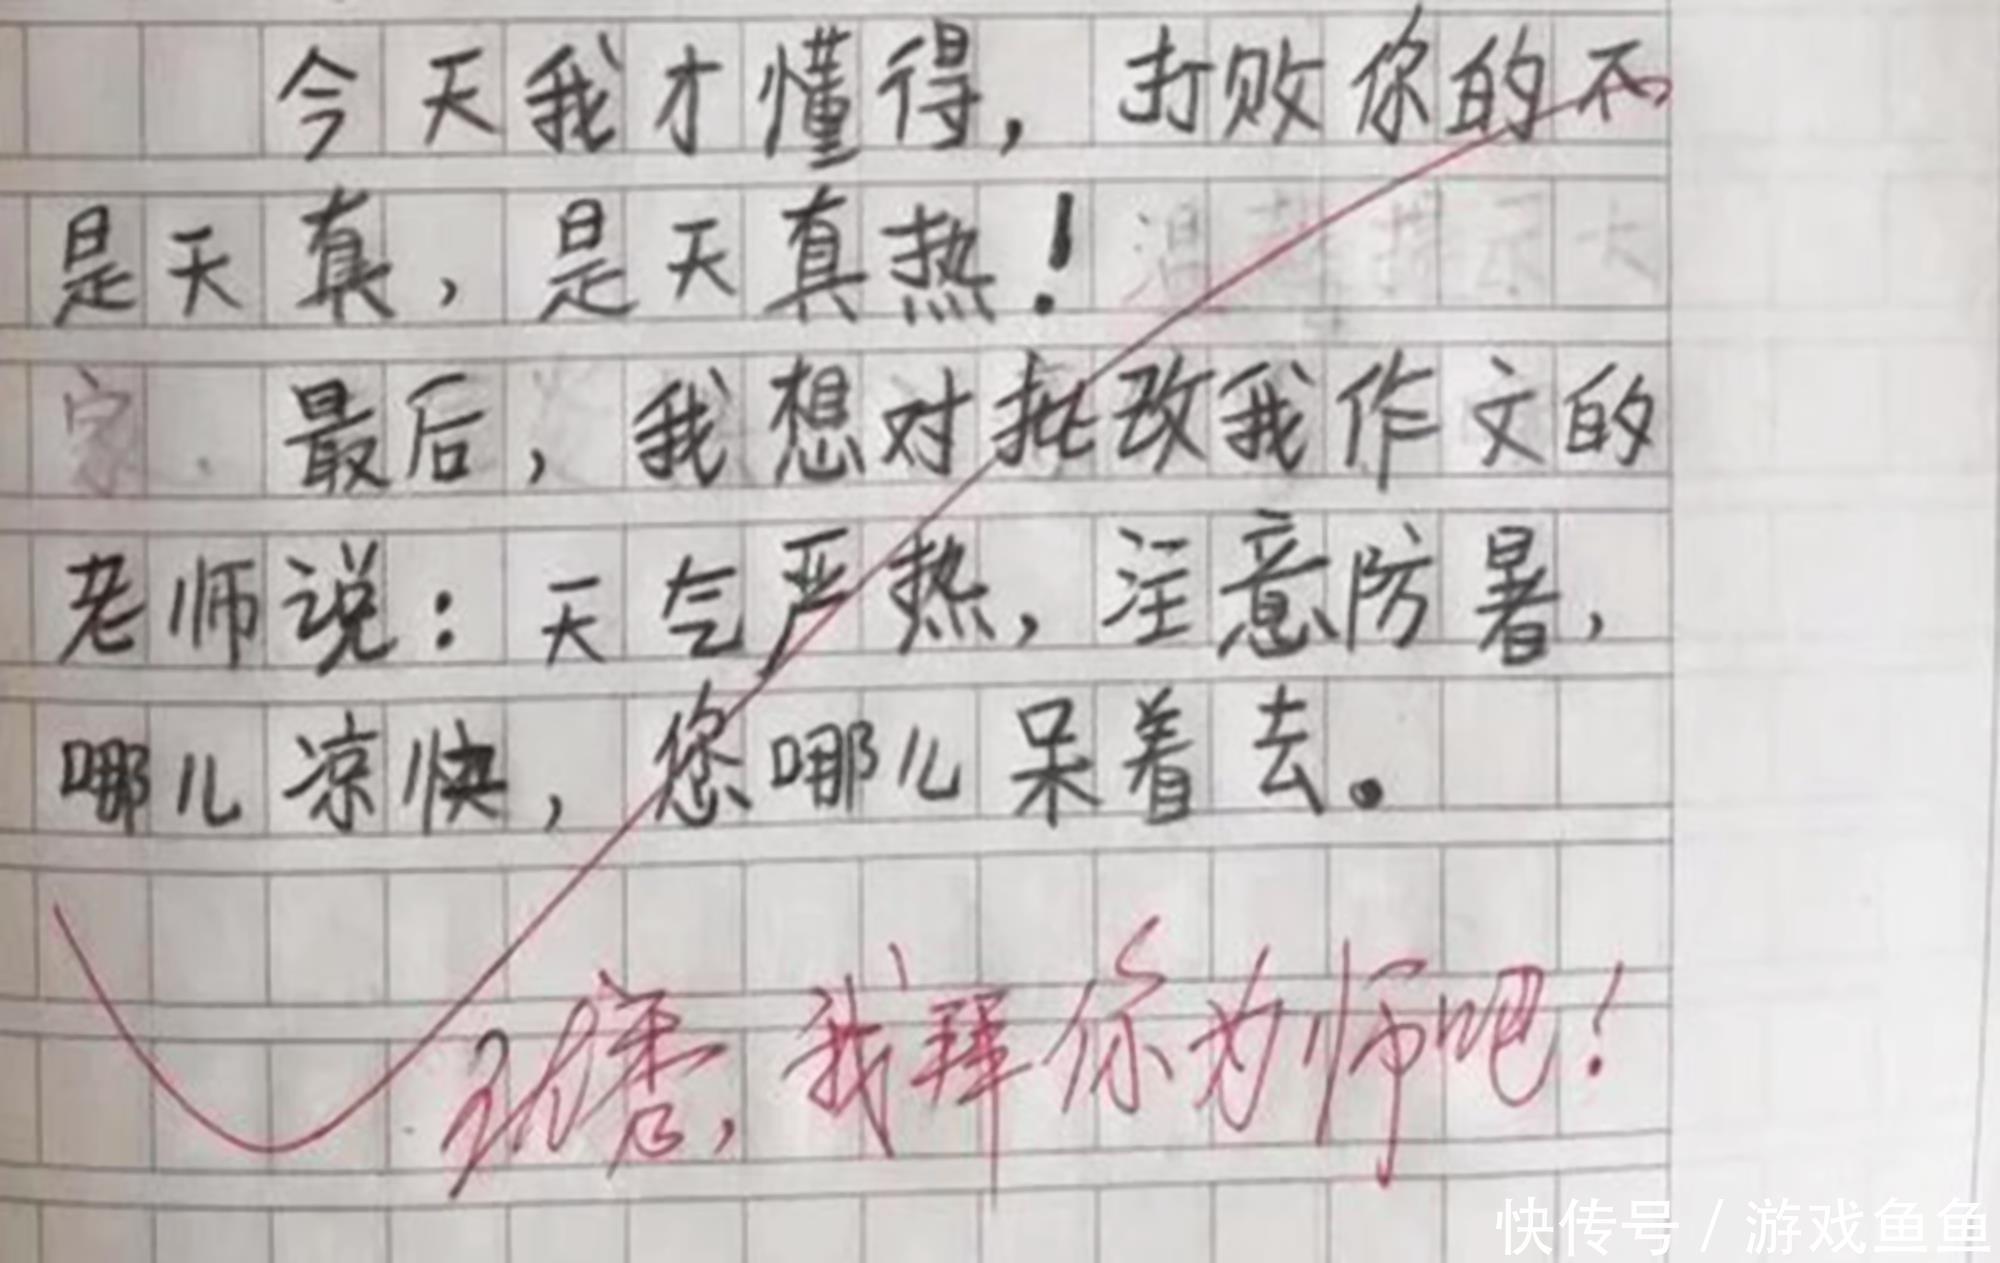 今天我才懂得，打败你的不
是天真，是天真热！温馨提示大
家．最后，我想对批改我作文的
老师说：天气严热，注意防暑，
哪儿凉快，您哪儿呆着去。
优秀，我拜你为师吧！
快传号 / 游戏鱼鱼